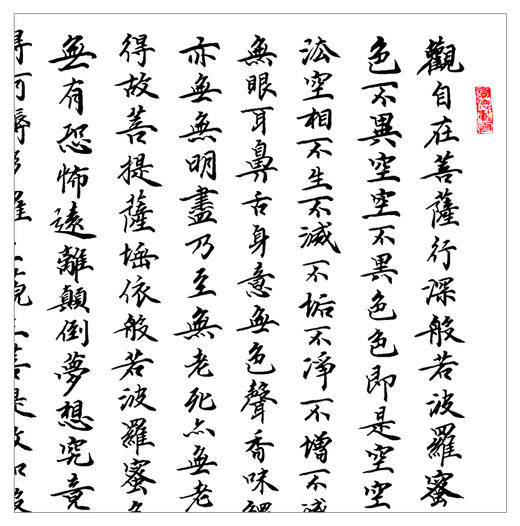 觀自在菩薩行深般若波羅蜜
色不異空空不異色色即是空空
法空相不生不滅不垢不淨不增不減
無眼耳鼻舌身意無色聲香味
亦無無明盡乃至無老死亦無老
得故菩提薩埵依般若波羅蜜
無有恐怖遠離顛倒夢想究竟